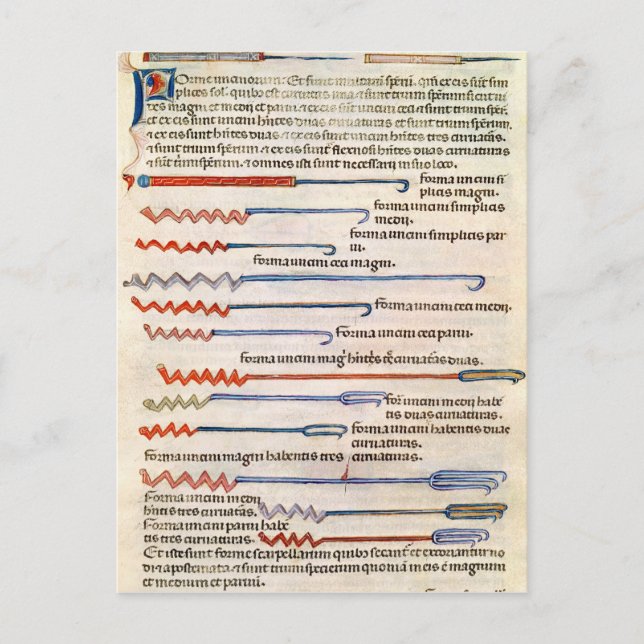 Forme uncinorum: Et sunt multarum speru. qm ex eis sūt sim
plices sol. quibo est curuitas una & sunt trium sperum sicut ui
tres magni et medij et parui. & ex eis cęci & sunt trium sper.
et ex eis uncini hn̄tes duas curuaturas et sunt trium sperum.
& ex eis sunt hn̄tes duas
& ex eis sunt uncini hn̄tes tres curuatas.
& sunt trium sperum. & ex eis sunt flexnosi hn̄tes duas curuaturas
& sunt trium sperum. & omnes isti sunt necessarij in suo loco.
forma uncini si
plicis magni.
forma uncini simplicis
medij.
forma uncini simplicis par
ui.
forma uncini ceci magni.
forma uncini ceci medij.
forma uncini ceci parui.
forma uncini magī hn̄tēs curuatas duas.
forā uncini medij habē
tis duas curuaturas.
forma uncini habentis duae
curuaturas.
forma uncini magni habentis tres curuaturas.
Forma uncini medij
hn̄tis tres curuatas.
Forma uncini parui habē
tis tres curuatas.
Et iste sunt forme scarpellarum quibo secant et excoriantur no
di & apostemata & sunt trium specierum quoniā in eis ē magnum
et medium et paruū.